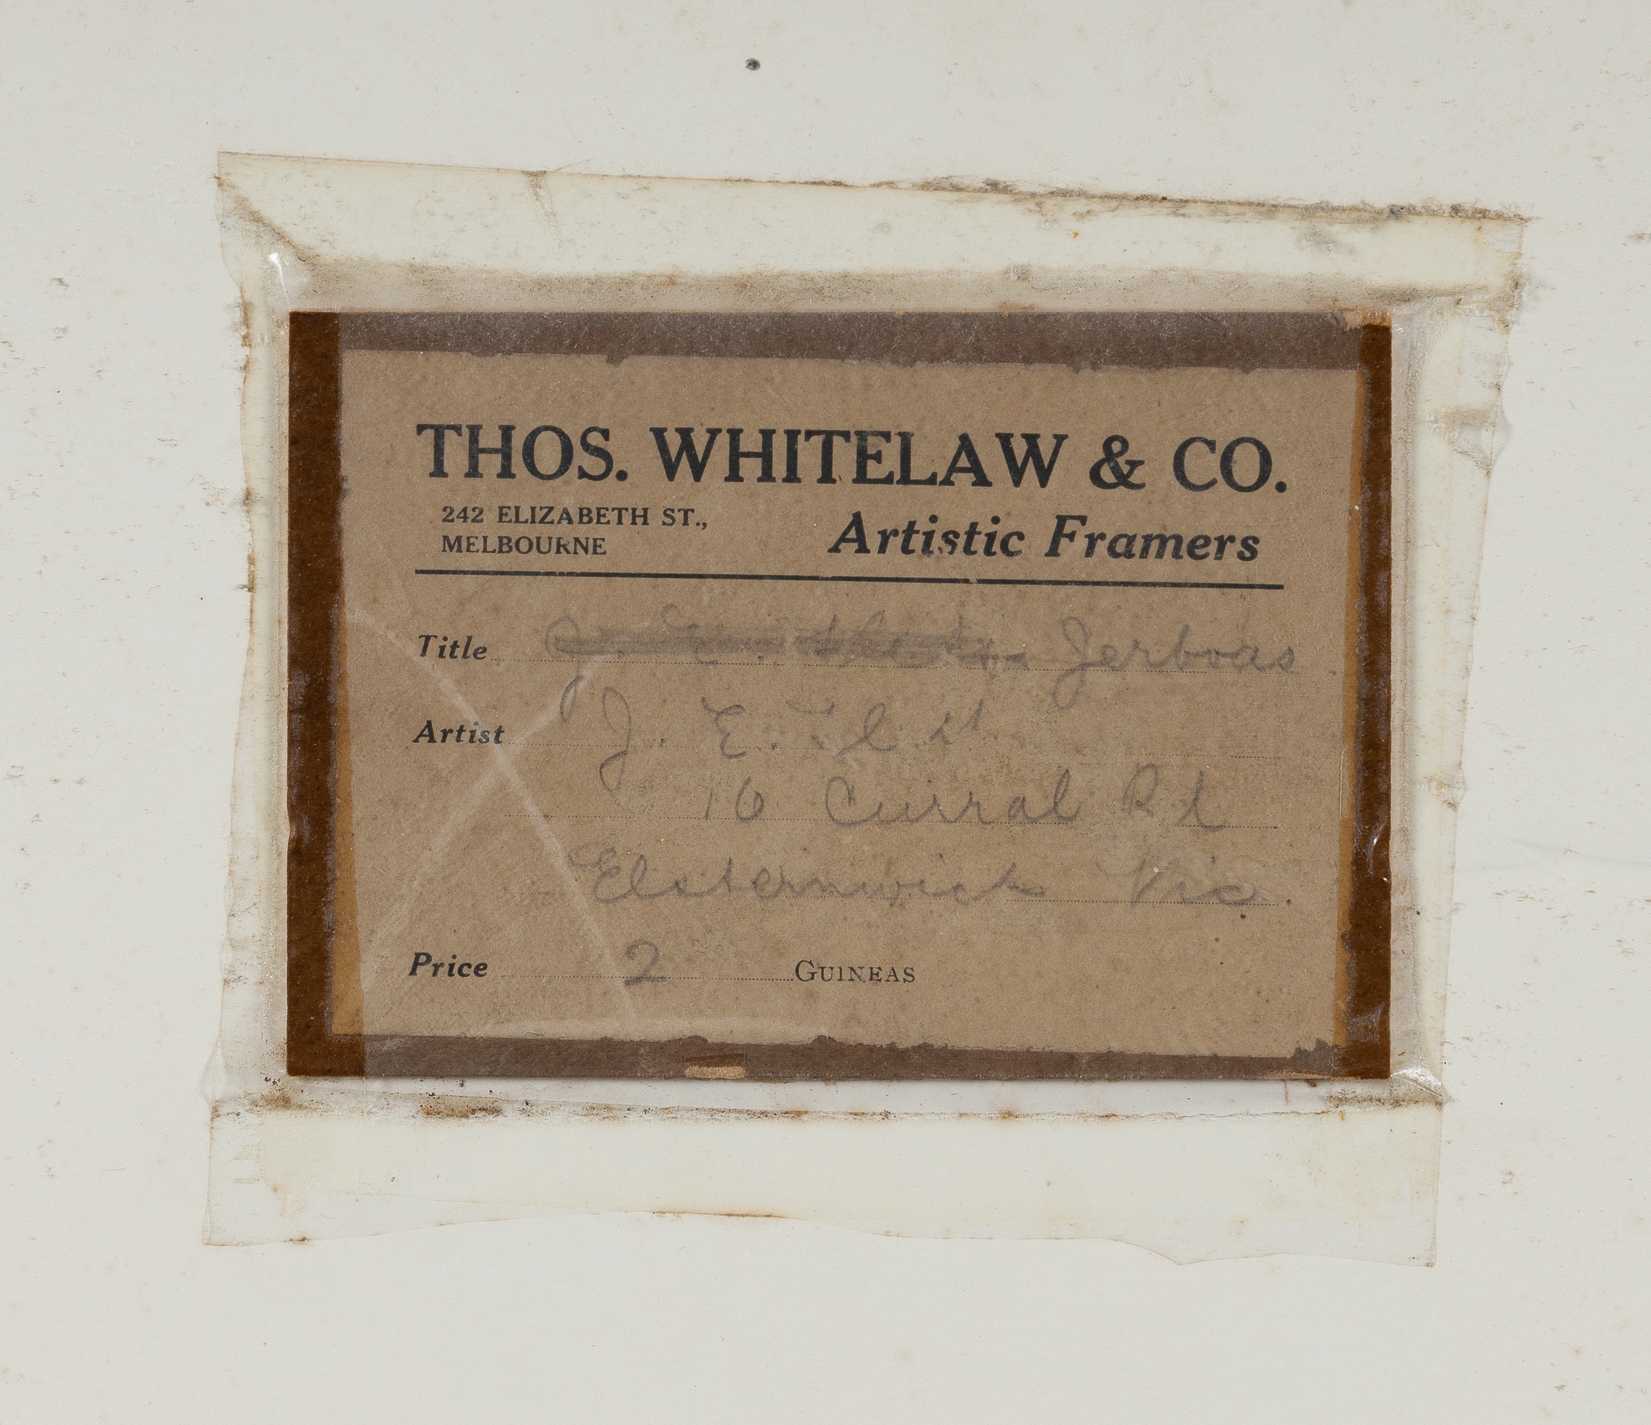 THOS. WHITELAW & CO.
242 ELIZABETH ST.,
MELBOURNE
Artistic Framers
Title Jerboas
Artist J. E.
16 Curral Rd
Elsternwick Vic.
Price 2 GUINEAS